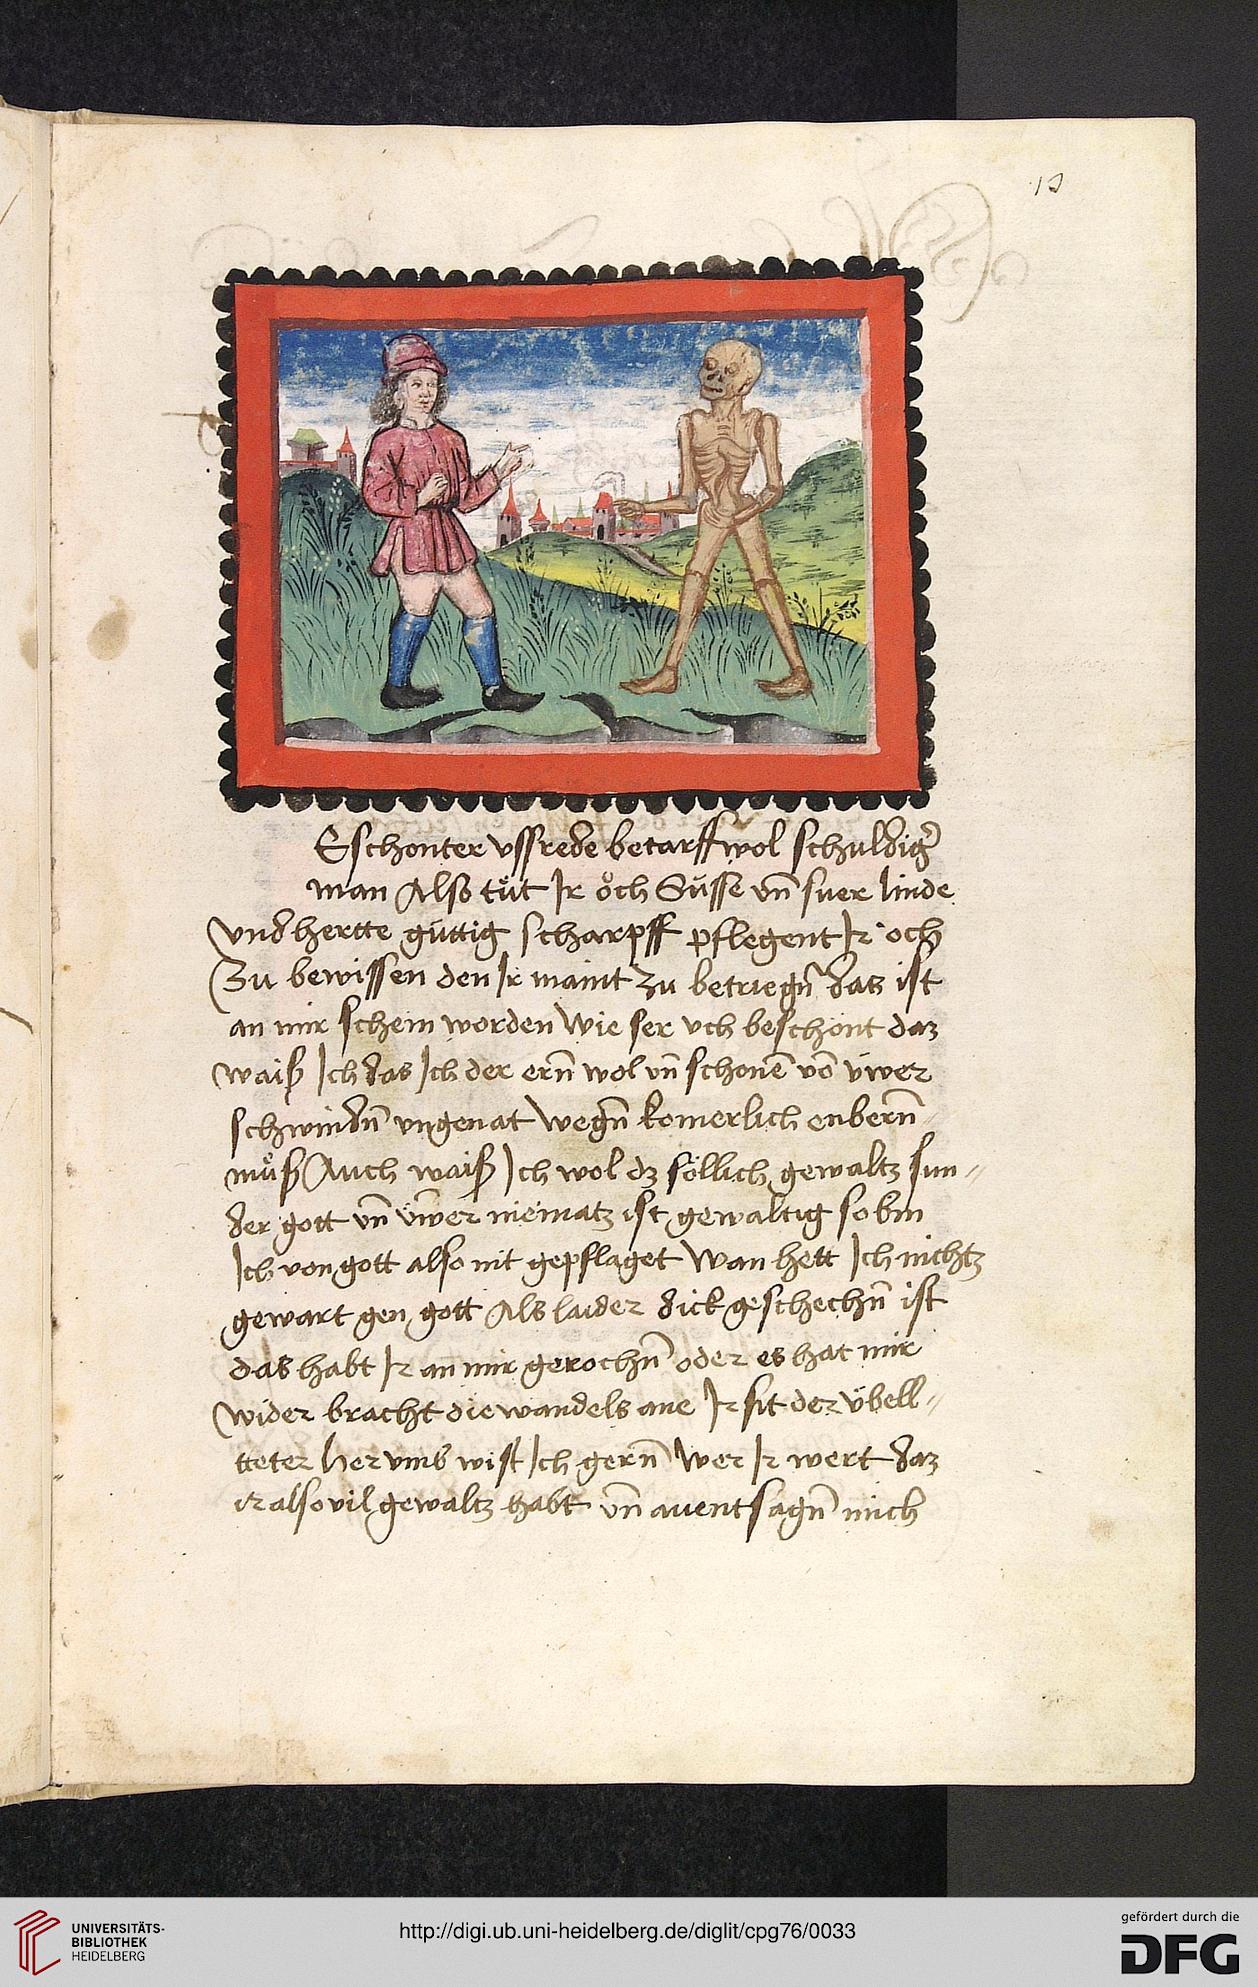 13
Eschonter vssrede betarff wol schuldiger
man Also tůt Ir öch Süsse vn̄ suer linde
vnd hertte güttig scharpff pflegent Ir och
Zu bewissen den Ir maint zu betriegn̄ das ist
an mir schein worden Wie ser vch beschönt daz
waiß Ich das Ich der ern̄ wol vn̄ schonē vō üwer
schwindn̄ vngenat wegn̄ komerlich enbern̄
můß Auch waiß Ich wol dz söllich gewaltz sun=
der gott vn̄ üwer niematz ist gewaltig so bin
Ich von gott also nit gepflaget Wan hett Ich nichtz
gewart gen gott Als laider dick geschechn̄ ist
das habt Ir an mir gerochn̄ oder es hat mir
wider bracht die wandels ane Ir sit der übell=
tteter her vmb wist Ich gern̄ Wer Ir wert daz
ir also vil gewaltz habt vn̄ auentsagn̄ mich
UNIVERSITÄTS-
BIBLIOTHEK
HEIDELBERG
http://digi.ub.uni-heidelberg.de/diglit/cpg76/0033
gefördert durch die
DFG